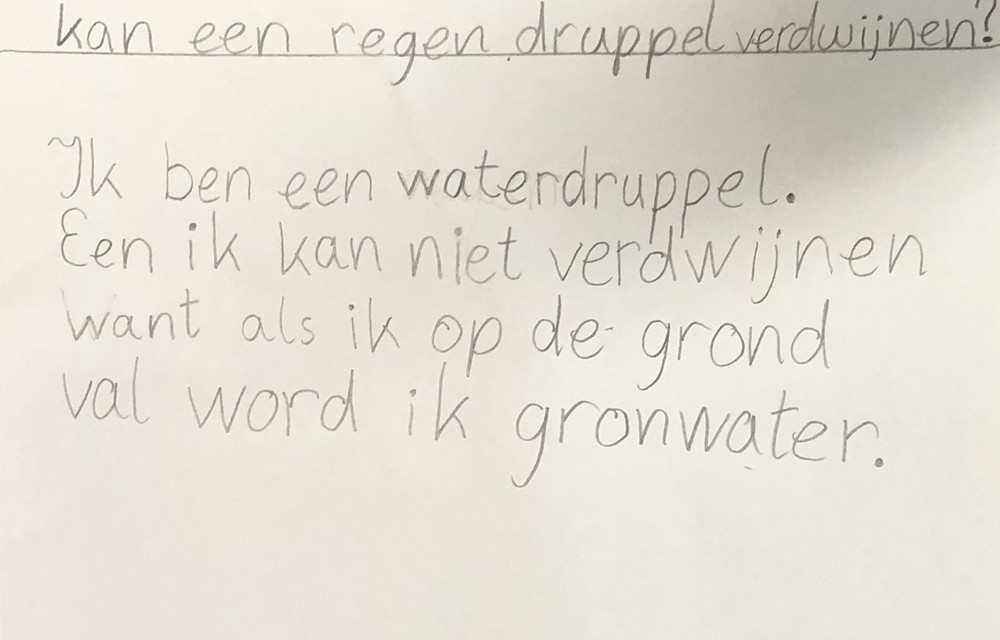 kan een regen druppel verdwijnen?
Ik ben een waterdruppel.
Een ik kan niet verdwijnen
want als ik op de grond
val word ik gronwater.